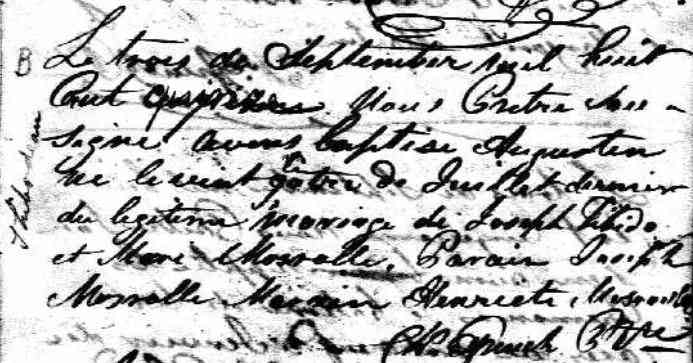 B Le trois de September mil huit
Cent quinze Nous Pretre sou-
signe avons baptise Augustin
ne le vint quatre de Juillet dernier
du legitime mariage de Joseph Tibido
et Marie Morvolle, Parain Joseph
Morvolle Marain Henriete
Ptre